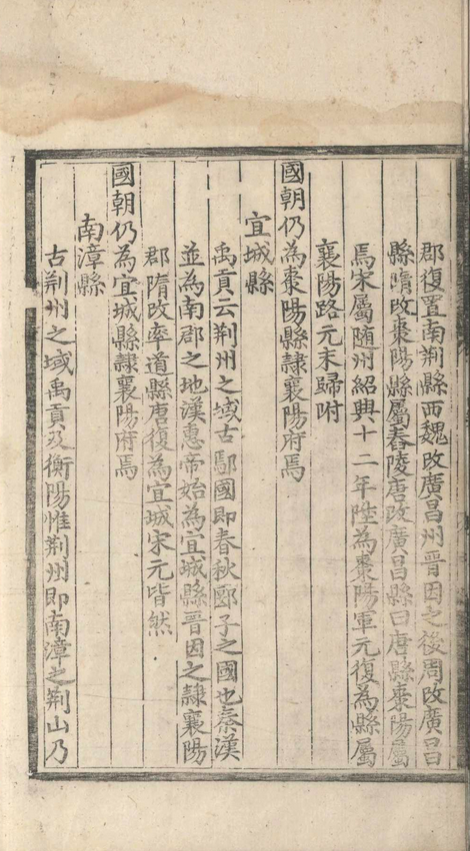 郡復置南荆縣西魏改廣昌州晉因之後周改廣昌
縣隋改棗陽縣屬舂陵唐改廣昌縣曰唐縣棗陽屬
焉宋屬随州紹興十二年陞為棗陽軍元復為縣屬
襄陽路元末歸附
國朝仍為棗陽縣隷襄陽府焉
宜城縣
禹貢云荆州之域古鄢國即春秋鄾子之國也秦漢
並為南郡之地漢惠帝始為宜城縣晉因之隷襄陽
郡隋改率道縣唐復為宜城宋元皆然
國朝仍為宜城縣隷襄陽府焉
南漳縣
古荆州之域禹貢及衡陽惟荆州即南漳之荆山乃